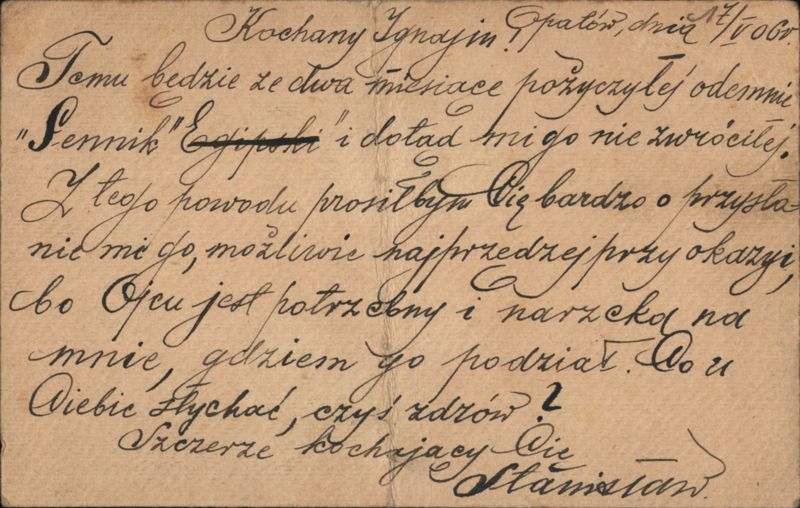 Kochany Ignasiu! Opatów, dnia 17/V 06 r.
Temu będzie ze dwa miesiące pożyczyłeś odemnie
„Sennik" Egipski" i dotąd mi go nie zwróciłeś.
Z tego powodu prosiłbym Cię bardzo o przysła-
nie mi go, możliwie najprzedzej przy okazyi,
bo Ojcu jest potrzebny i narzeka na
mnie, gdziem go podział. Co u
Ciebie słychać, czyś zdrów?
Szczerze kochający Cię
Stanisław.